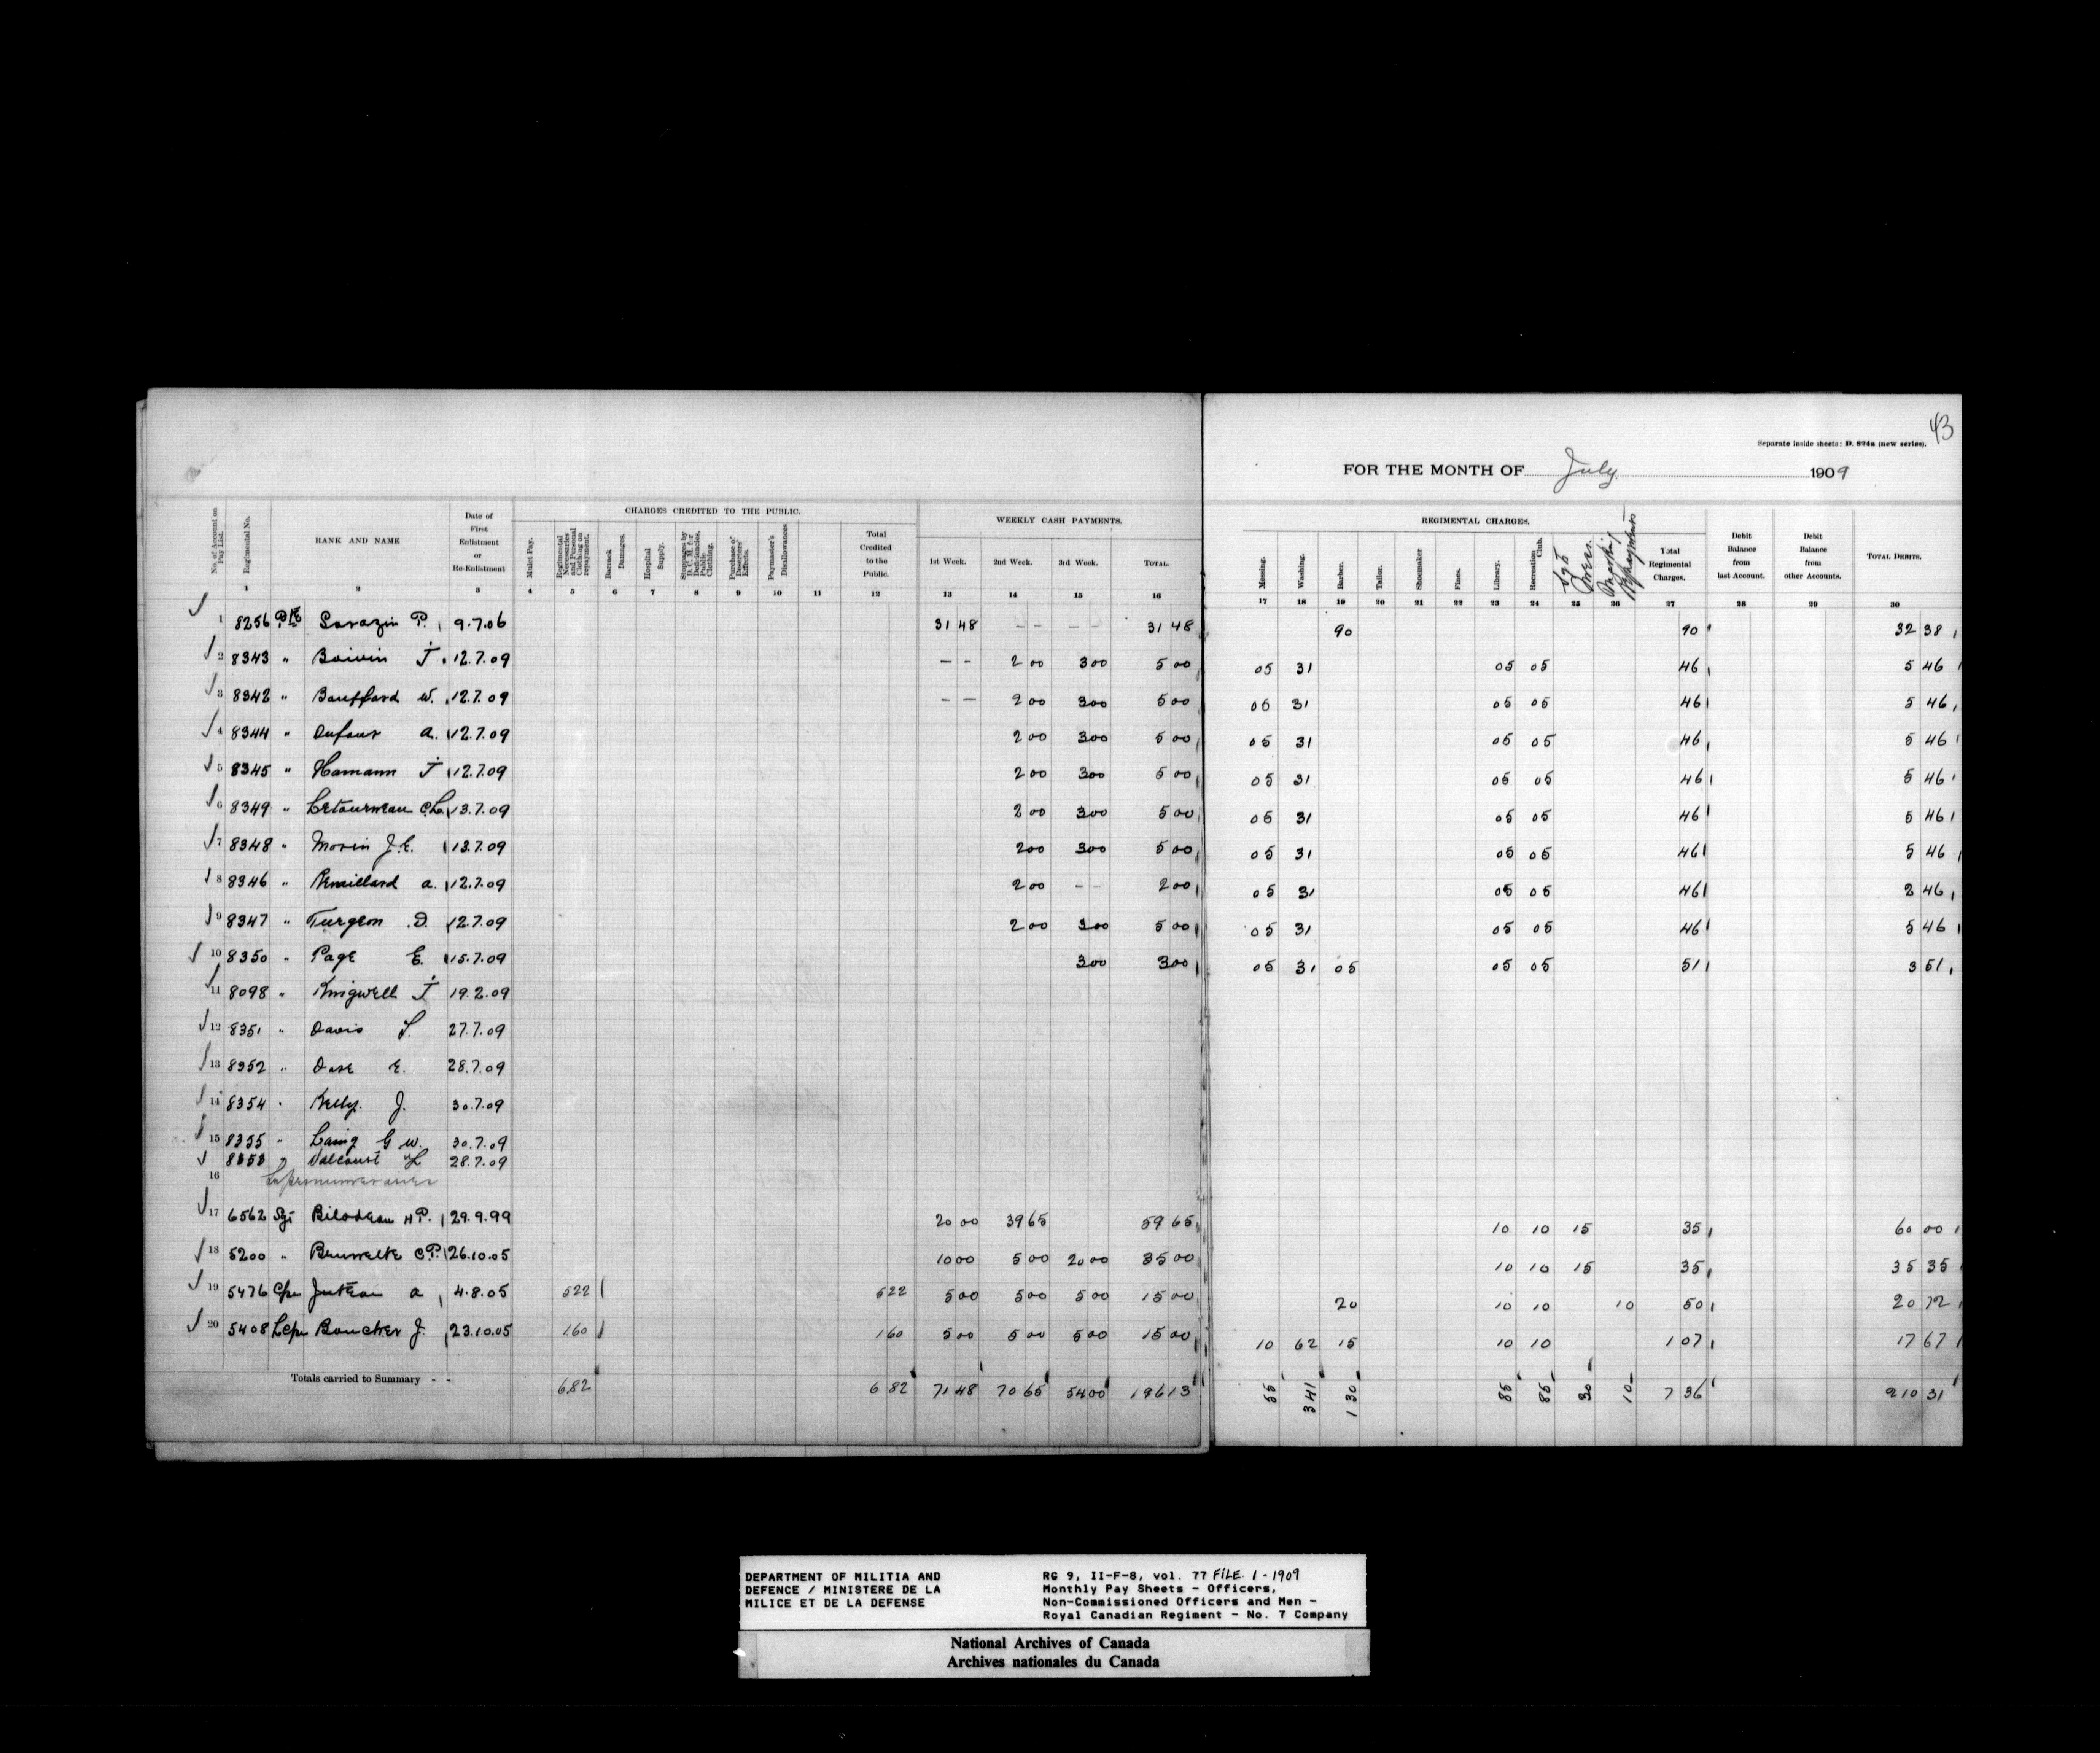 43
Separate inside sheets: D. 824a (new series).
FOR THE MONTH OF July 1909
No. of Account on Pay List.
Regimental No.
RANK AND NAME
Date of First Enlistment or Re-Enlistment
CHARGES CREDITED TO THE PUBLIC.
Mulct Pay.
Regimental Necessaries and Personal Clothing on repayment.
Barrack Damages.
Hospital Supply.
Stoppages by D. C. M. for Deficiencies, Public Clothing.
Purchase of Deserters' Effects.
Paymaster's Disallowances
Total Credited to the Public.
WEEKLY CASH PAYMENTS.
1st Week. 2nd Week. 3rd Week. TOTAL.
REGIMENTAL CHARGES.
Messing. Washing. Barber. Tailor. Shoemaker Fines. Library. Recreation Club. Sgt Repayments
Total Regimental Charges.
Debit Balance from last Account.
Debit Balance from other Accounts.
TOTAL DEBITS.
1 2 3 4 5 6 7 8 9 10 11 12 13 14 15 16 17 18 19 20 21 22 23 24 25 26 27 28 29 30
1 8256 Pte Sarazin P. 9.7.06 31 48 - - - - 31 48 90 90 32 38
2 8343 " Boivin J. 12.7.09 - - 2 00 3 00 5 00 05 31 05 05 46 5 46
3 8342 " Bouffard W. 12.7.09 - - 2 00 3 00 5 00 05 31 05 05 46 5 46
4 8344 " Dufour A. 12.7.09 2 00 3 00 5 00 05 31 05 05 46 5 46
5 8345 " Hamann J 12.7.09 2 00 3 00 5 00 05 31 05 05 46 5 46
6 8349 " Letourneau C.L. 13.7.09 2 00 3 00 5 00 05 31 05 05 46 5 46
7 8348 " Morin J.E. 13.7.09 2 00 3 00 5 00 05 31 05 05 46 5 46
8 8346 " Remillard A. 12.7.09 2 00 - - 2 00 05 31 05 05 46 2 46
9 8347 " Turgeon D. 12.7.09 2 00 3 00 5 00 05 31 05 05 46 5 46
10 8350 " Page E. 15.7.09 3 00 3 00 05 31 05 05 05 51 3 51
11 8098 " J 19.2.09
12 8351 " Davis 27.7.09
13 8352 " E. 28.7.09
14 8354 " Kelly. J. 30.7.09
15 8355 " Laing G W. 30.7.09
8353 " Valcourt L 28.7.09
16 Supernumeraries
17 6562 Sgt Bilodeau H P. 29.9.99 20 00 39 65 59 65 10 10 15 35 60 00
18 5200 " C.P. 26.10.05 10 00 5 00 20 00 35 00 10 10 15 35 35 35
19 5476 Cpl Juteau A 4.8.05 5 22 5 22 5 00 5 00 5 00 15 00 20 10 10 10 50 20 72
20 5408 LCpl Boucher J. 23.10.05 1 60 1 60 5 00 5 00 5 00 15 00 10 62 15 10 10 1 07 17 67
Totals carried to Summary - - 6 82 6 82 71 48 70 65 54 00 196 13 55 3 41 1 30 85 85 30 10 7 36 210 31
DEPARTMENT OF MILITIA AND
DEFENCE / MINISTERE DE LA
MILICE ET DE LA DEFENSE
RG 9, II-F-8, vol. 77 FILE. 1 - 1909
Monthly Pay Sheets - Officers,
Non-Commissioned Officers and Men -
Royal Canadian Regiment - No. 7 Company
National Archives of Canada
Archives nationales du Canada